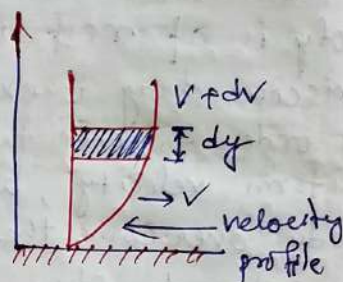 V + dV
dy
→ V
velocity
profile